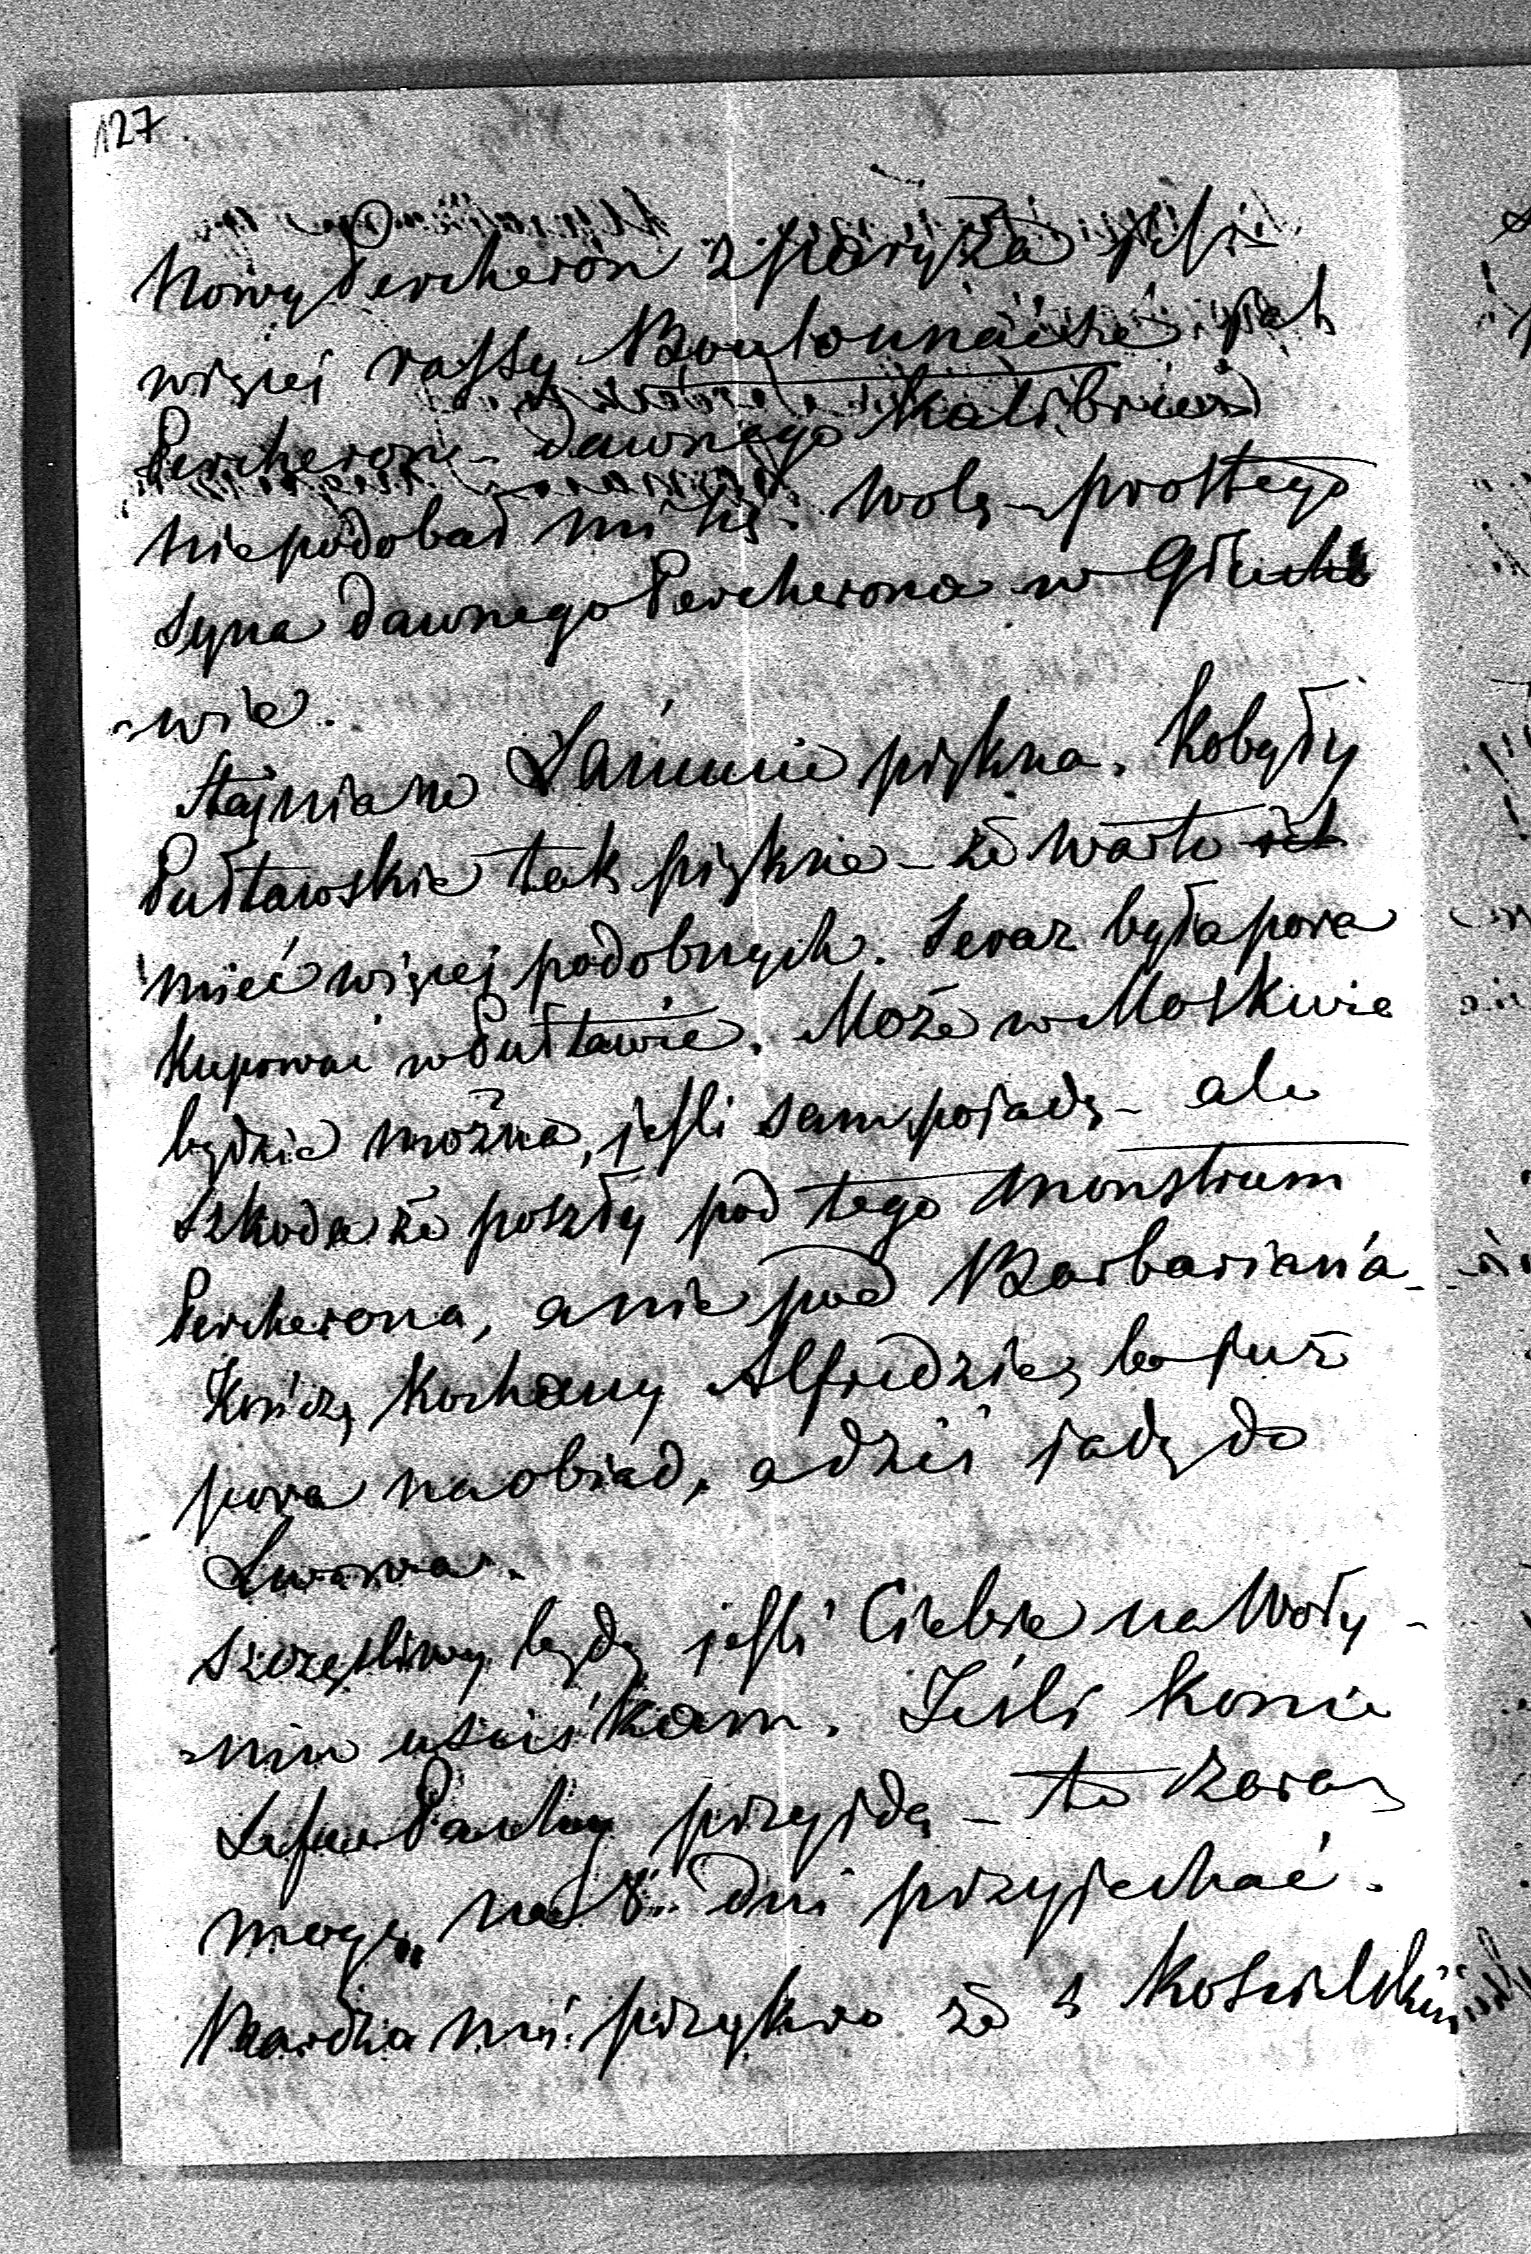 127
Nowy Percheron z Paryża jest
więcej rassy Boulonnaise jak
Percheron - dawnego
niepodobał mi się. Wolę - prostego
syna dawnego Percherona w Głuchó
-wie.
Stajnia w Łańcucie piękna. Kobyły
Pułtawskie tak piękne - że warto
mieć więcej podobnych. Teraz była pora
kupować w Pułtawie. Może w Moskwie
będzie można, jeśli sam pojadę - ale
szkoda że poszły pod tego monstrum
Percherona, a nie pod Barbariana -
Kończę kochany Alfredzie, bo już
pora na obiad, a dziś jadę do
Lwowa.
Szczęśliwy będę jeśli Ciebie na Woły-
-niu uściskam. Jeśli konie
przyjdą - to zaraz
mogę na 8 dni przyjechać.
Bardzo mi przykro że z Kościelskim